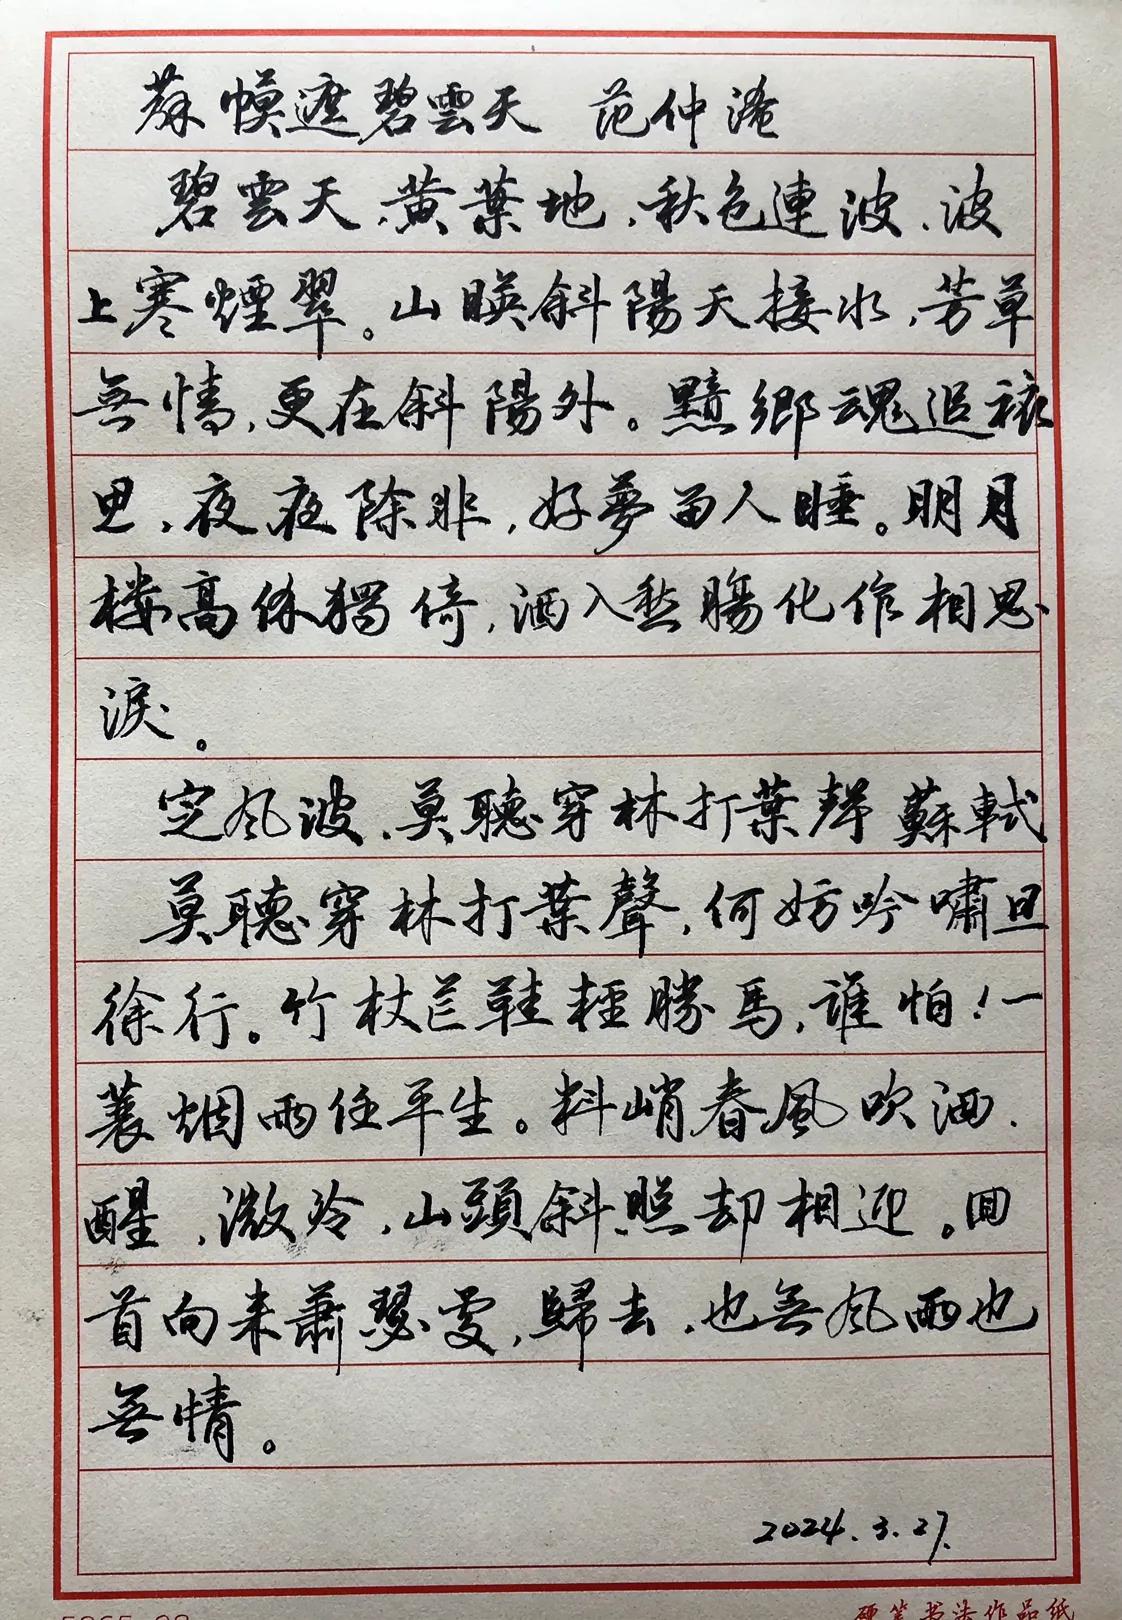 蘇幙遮碧雲天 范仲淹
碧雲天,黄葉地,秋色連波,波
上寒煙翠。山映斜陽天接水,芳草
無情,更在斜陽外。黯鄉魂追旅
思,夜夜除非,好夢留人睡。明月
楼高休獨倚,酒入愁腸化作相思
淚。
定风波,莫聽穿林打葉聲 蘇軾
莫聽穿林打葉聲,何妨吟嘯且
徐行。竹杖芒鞋輕勝馬,誰怕!一
蓑烟雨任平生。料峭春風吹酒
醒,微冷,山頭斜照却相迎。回
首向来蕭瑟處,歸去,也無风雨也
無情。
2024.3.27.
硬笔书法作品纸